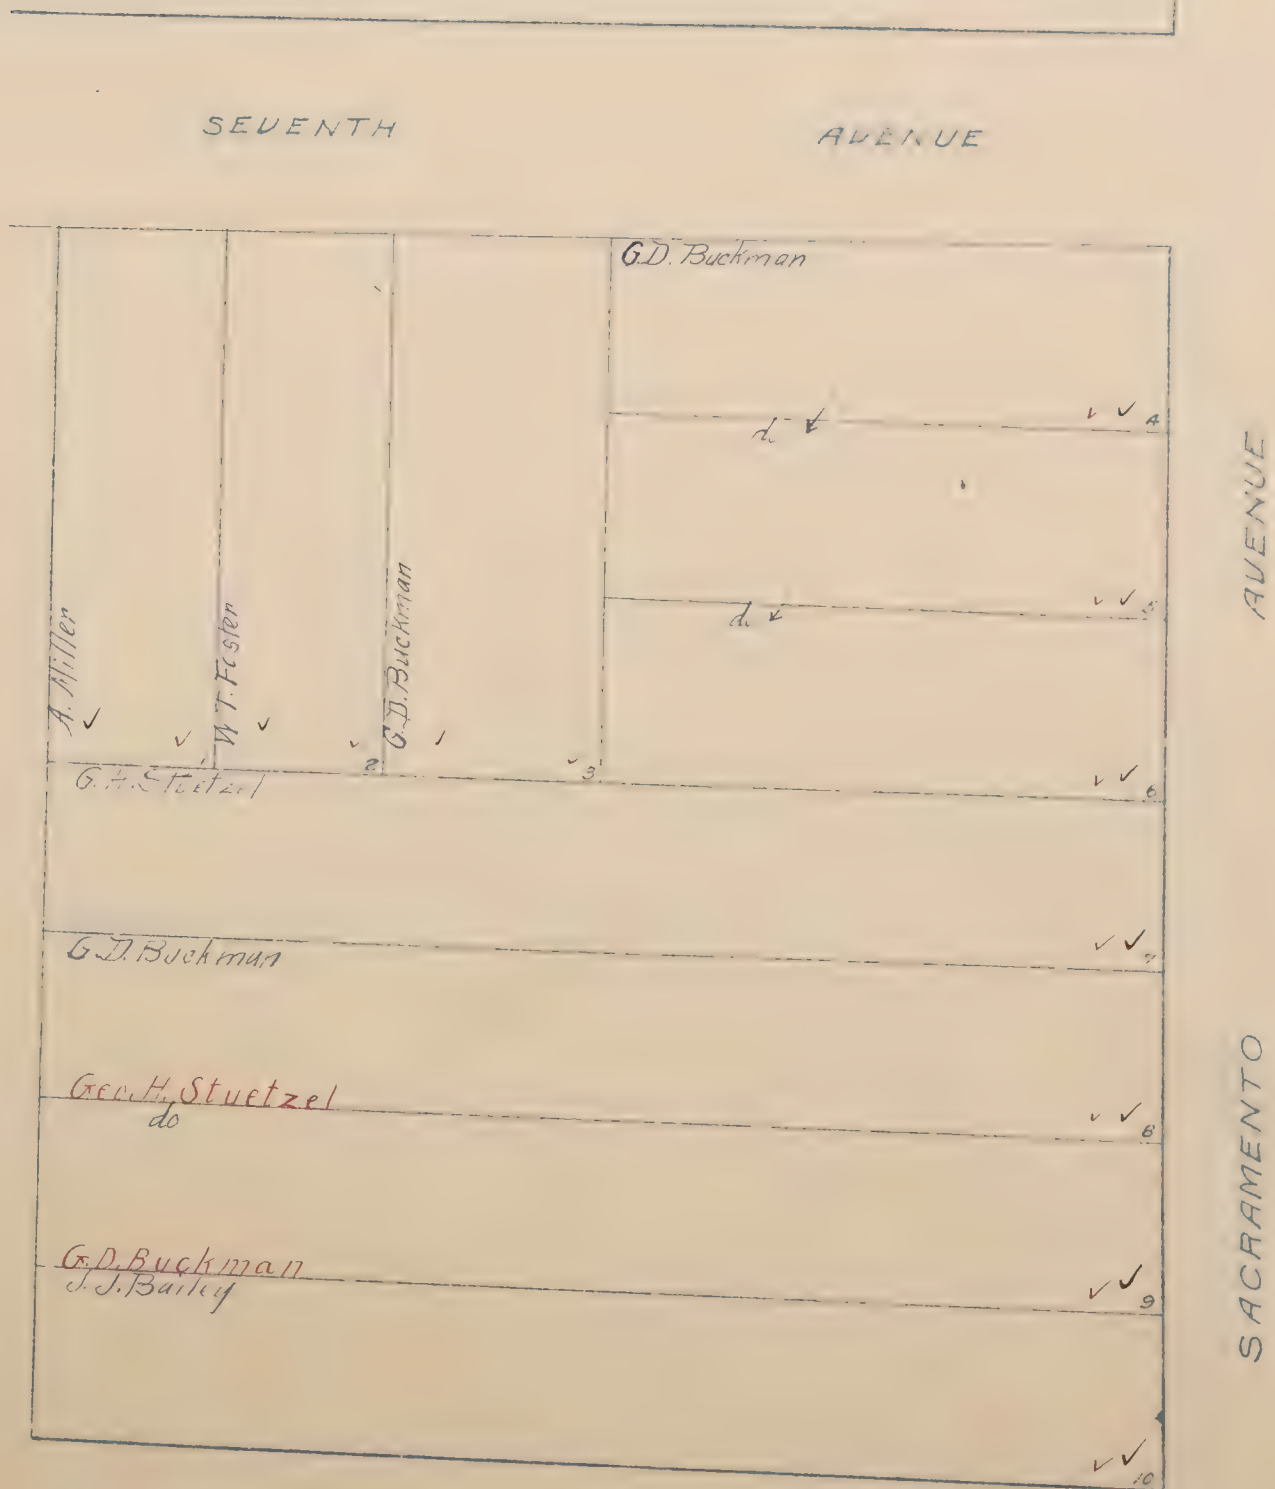 SEVENTH AVENUE
G.D. Buckman
4
do
5
do
A. Miller
W. T. Foster
G.D. Buckman
1
2
3
6
G. H. Stuetzel
7
G.D. Buckman
Geo. H. Stuetzel
do
8
G.D. Buckman
J. J. Bailey
9
10
SACRAMENTO AVENUE